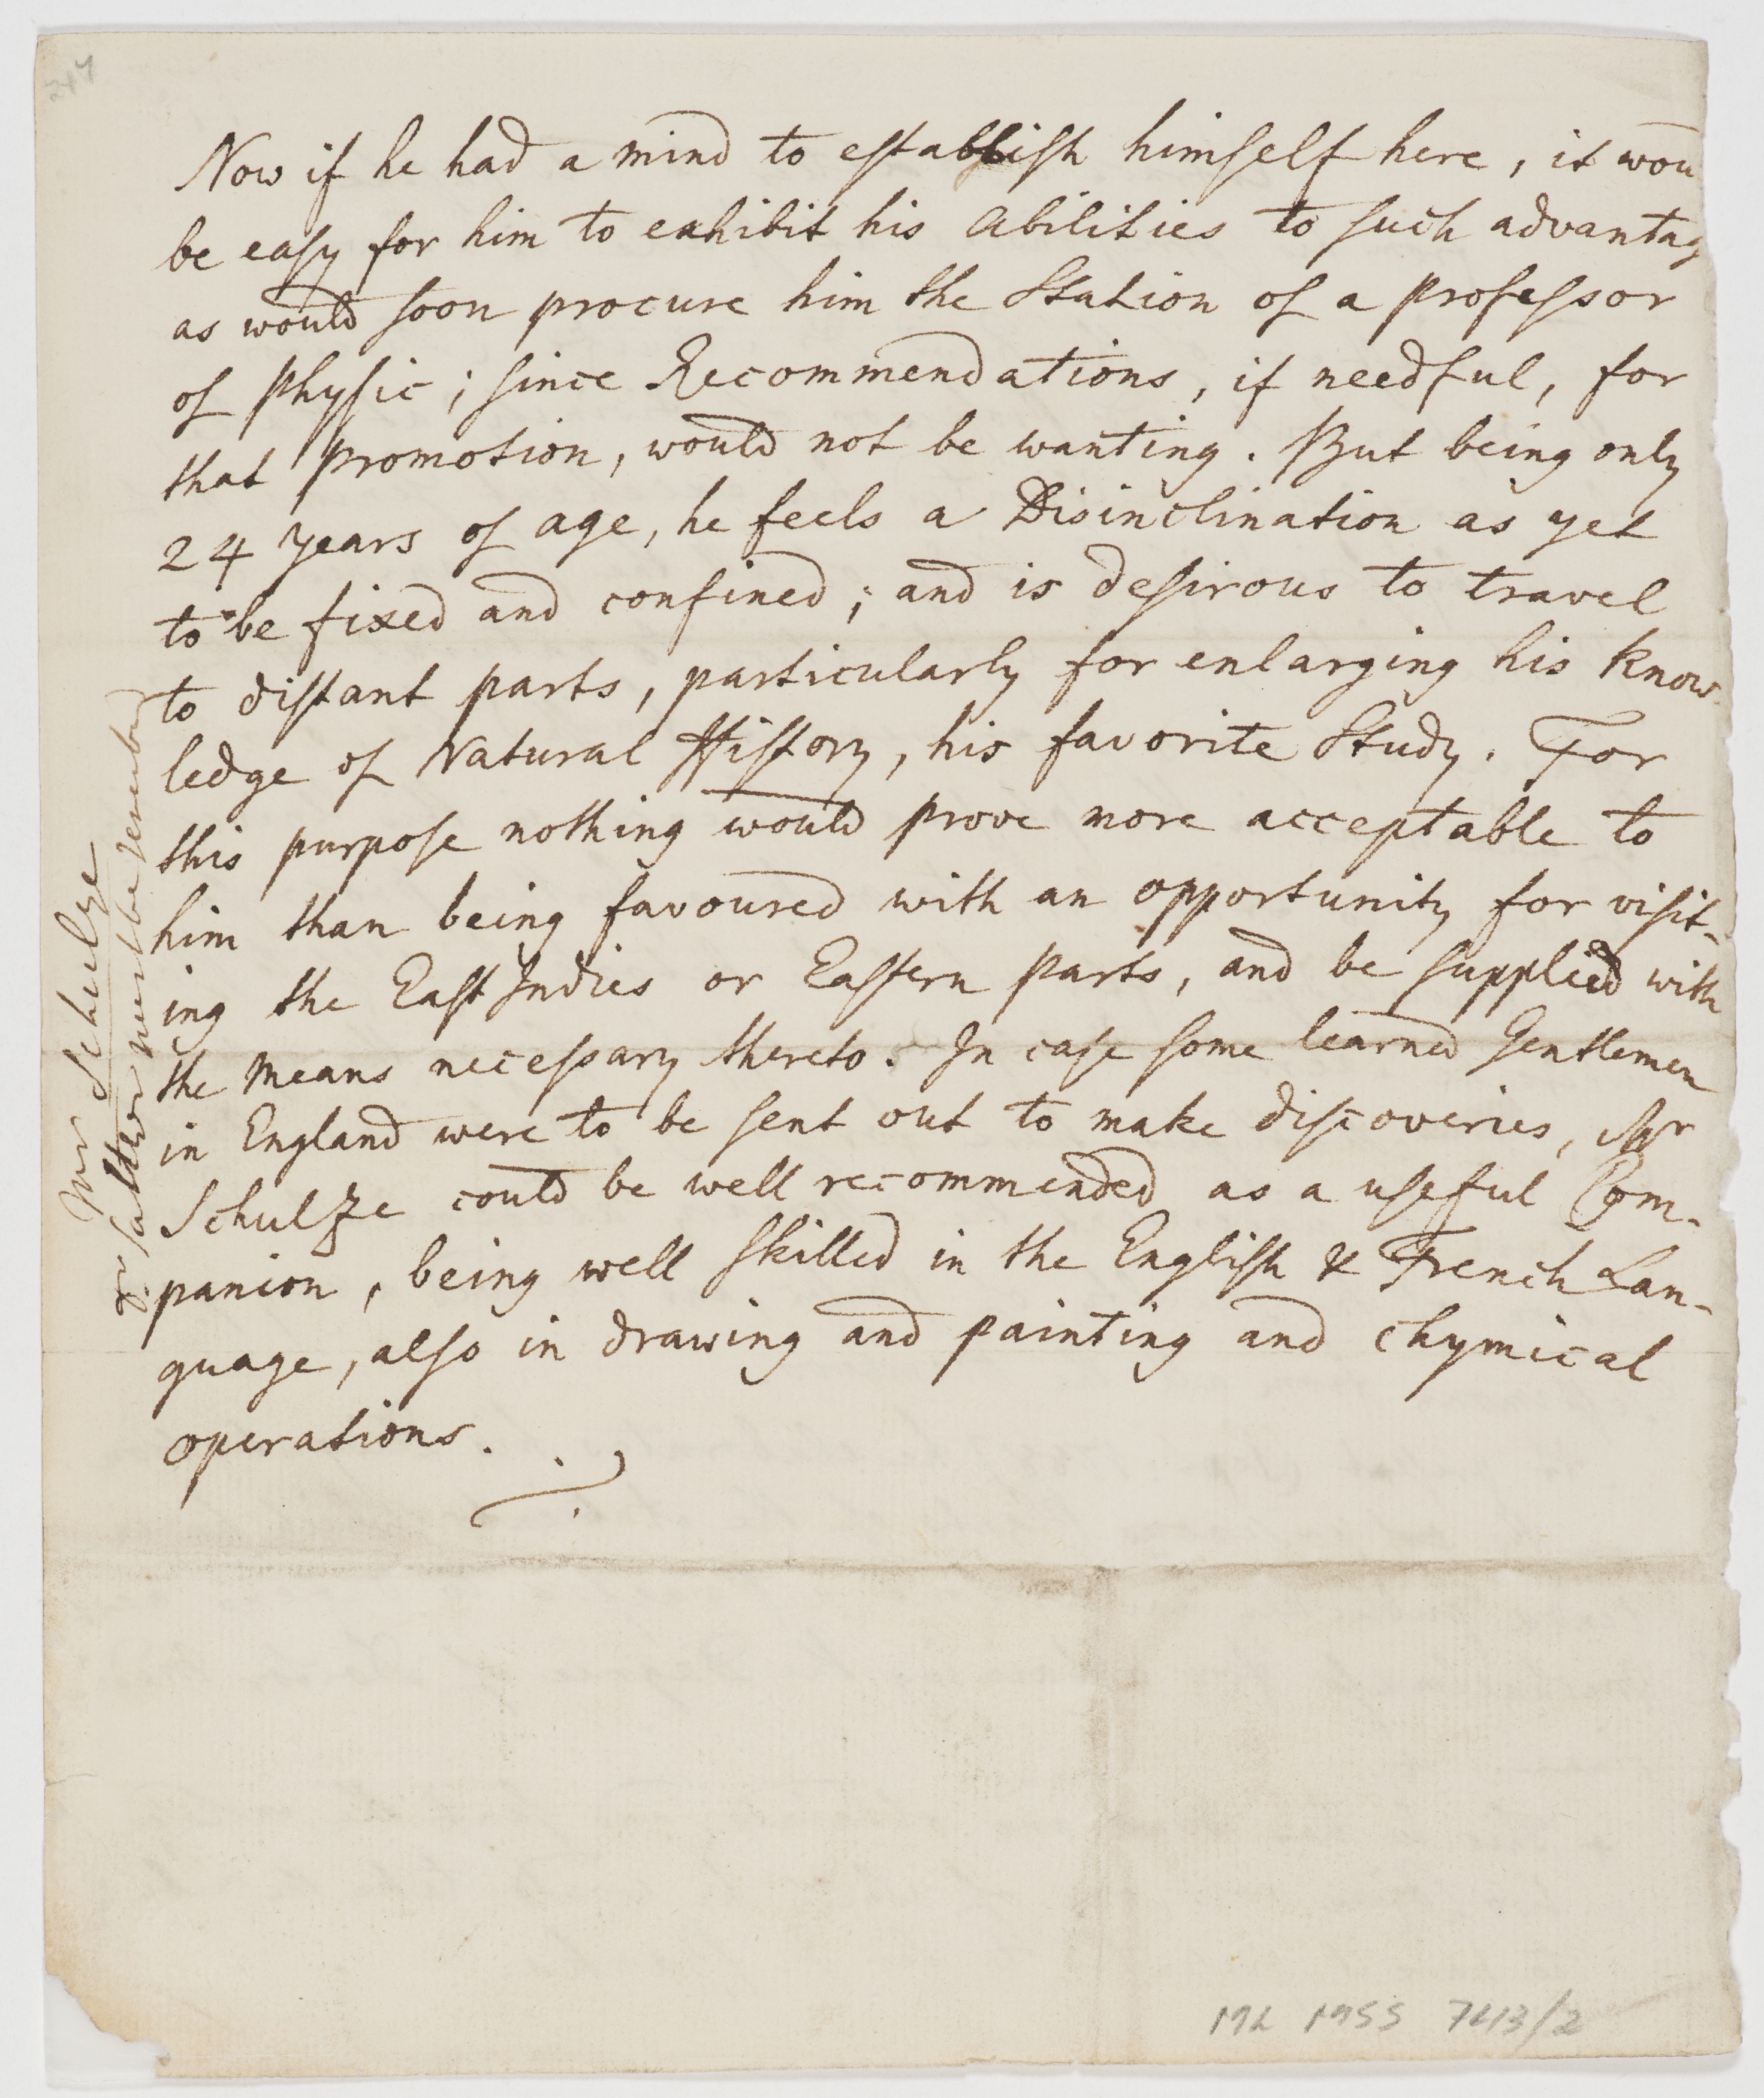 247
Now if he had a mind to establish himself here, it wou
be easy for him to exhibit his Abilities to such advantag
as would soon procure him the Station of a professor
of physic; since Recommendations, if needful, for
that promotion, would not be wanting. But being only
24 years of age, he feels a Disinclination as yet
to be fixed and confined; and is desirous to travel
to distant parts, particularly for enlarging his know-
ledge of Natural History, his favorite Study. For
this purpose nothing would prove more acceptable to
him than being favoured with an opportunity for visit-
ing the East Indies or Eastern parts, and be supplied with
the means necessary thereto. In case some learned Gentlemen
in England were to be sent out to make discoveries, Mr
Schulze could be well recommended as a useful Com-
panion, being well skilled in the English & French Lan-
guage, also in drawing and painting and chymical
operations.
Mr Schulze
must be
ML MSS 7413/2